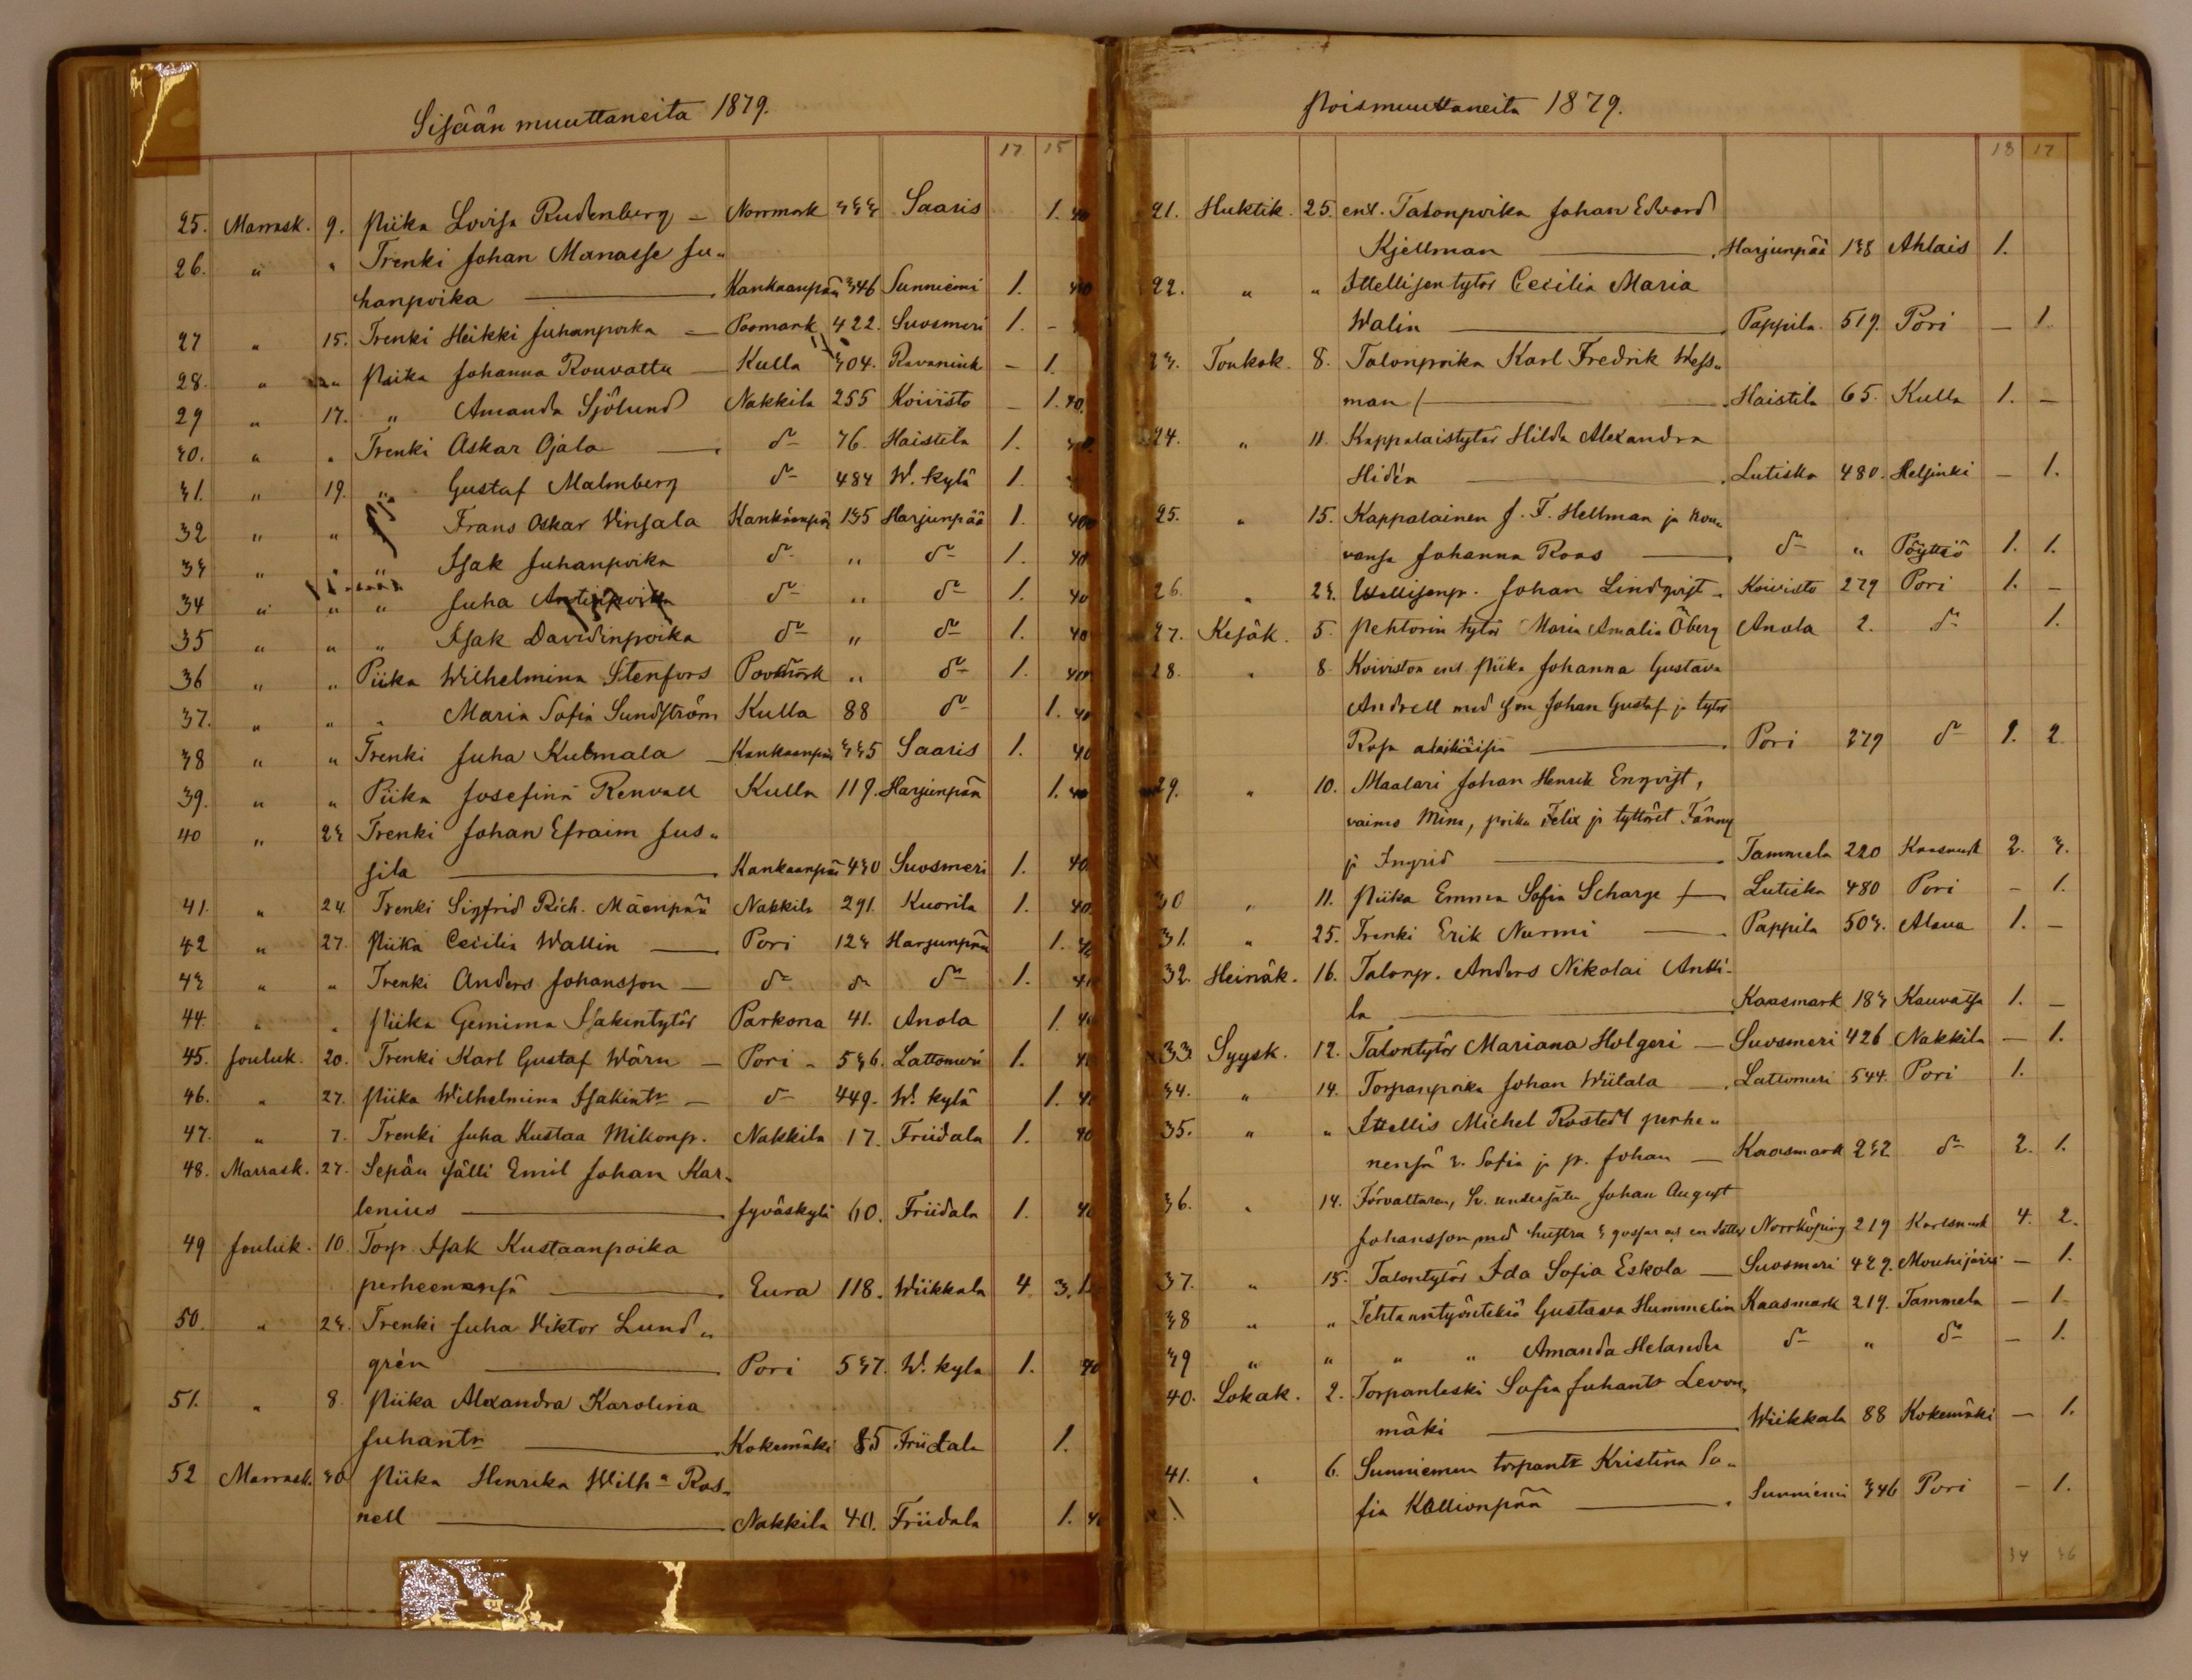 Sisään muuttaneita 1879.
17 15
25. Marrask. 9. Piika Lovisa Rudenberg – Norrmark 333 Saaris 1. 40
26. " " Trenki Johan Manasse Ju„
hanpoika — Kankaanpää 346 Sunniemi 1. 40
27 " 15. Trenki Heikki Juhanpoika – Poomark 422. Suosmeri 1. –
28. " " Piika Johanna Rouvattu – Kulla 304. Ravanink – 1.
29 " 17. " Amanda Sjölund Nakkila 255 Koivisto – 1. 40.
30. " " Trenki Oskar Ojala — d:o 76. Haistila 1. 40
31. " 19. " Gustaf Malmberg d:o 484 W. kylä 1.
32 " " " Frans Oskar Vinsala Kankaanpää 135 Harjunpää 1. 40
33 " " " Isak Juhanpoika d:o " d:o 1. 40
34 " " " Juha Antinpoika d:o " d:o 1. 40
35 " " " Isak Davidinpoika d:o " d:o 1. 40
36 " " Piika Wilhelmina Stenfors Poomark " d:o 1. 40
37. " " " Maria Sofia Sundström Kulla 88 d:o 1. 40
38 " " Trenki Juha Kulmala – Kankaanpää 335 Saaris 1. 40
39. " " Piika Josefina Renvall Kulla 119. Harjunpää 1. 40
40 " 23 Trenki Johan Efraim Jus„
sila — Kankaanpää 430 Suosmeri 1. 40
41. " 24. Trenki Sigfrid Rich. Mäenpää Nakkila 291. Kuorila 1. 40
42 " 27. Piika Cecilia Wallin — Pori 123 Harjunpää 1. 40
43 " " Trenki Anders Johansson – d:o d:o d:o 1. 40
44. " " Piika Gemima Isakintytär Parkona 41. Anola 1. 40
45. Jouluk. 20. Trenki Karl Gustaf Wärn – Pori – 536. Lattomeri 1. 40
46. " 27. Piika Wilhelmina Isakintr – d:o 449. W. kylä 1. 40
47. " 7. Trenki Juha Kustaa Mikonp. Nakkila 17. Friidala 1. 40
48. Marrask. 27. Sepän sälli Emil Johan Kar„
lenius — Jyväskylä 60. Friidala 1. 40
49 Jouluk. 10. Torp Isak Kustaanpoika
perheenensä — Eura 118. Wiikkala 4 3.
50. " 23. Trenki Juha Viktor Lund„
grén — Pori 537. W. kyla 1. 40
51. " 8. Piika Alexandra Karolina
Juhantr — Kokemäki 85 Friidala 1.
52 Marrask. 30. Piika Henrika Wilh:a Ros„
nell — Nakkila 40. Friidala 1. 40
Poismuuttaneita 1879.
18 17
21. Huhtik. 25. ent. Talonpoika Johan Edvard
Kjellman — Harjunpää 138 Ahlais 1.
22. " " Itellisen tytär Cecilia Maria
Walin — Pappila. 519. Pori – 1.
23. Toukok. 8. Talonpoika Karl Fredrik Wess„
man — Haistila 65. Kulla 1. –
24. " 11. Kappalaistytär Hilda Alexandra
Hidén — Lutiska 480. Helsinki – 1.
25. " 15. Kappalainen J. F. Hellman ja Rou„
vansa Johanna Roos — d:o " Pöyttiö 1. 1.
26. " 23. Itsellisenp. Johan Lindqvist. Koivisto 279 Pori 1. –
27. Kesäk. 5. Pehtorin tytär Maria Amalia Öberg Anola 2. d:o 1.
28. " 8. Koiviston ent piika Johanna Gustava
Andrell med son Johan Gustaf ja tytär
Rosa — Pori 279 d:o 1. 2
29. " 10. Maalari Johan Henrik Enqvist,
vaimo Mina, poika Felix ja tyttäret Fanny
ja Ingrid — Tammela 220 Kaasmark 2. 3.
30 " 11. Piika Emma Sofia Scharge — Lutiska 480 Pori – 1.
31. " 25. Trenki Erik Nurmi — Pappila 503. Alava 1. –
32. Heinäk. 16. Talonp. Anders Nikolai Antti–
la — Kaasmark 183 Kauvatsa 1. –
33 Syysk. 12. Talontytär Mariana Holgeri – Suosmeri 426 Nakkila – 1.
34. " 14. Torpanpoika Johan Wiitala — Lattomeri 544. Pori 1.
35. " " Itellis Michel Rostedt perhe„
nensä v. Sofia ja p. Johan – Kaasmark 232 d:o 2. 1.
36. " 14. Förvaltaren, Sv. undersåten Johan August
Johansson med hustru 3 gossar och en dotter Norrköping 219 Karlsmark 4. 2.
37. " 15. Talontytär Ida Sofia Eskola – Suosmeri 429. Mouhijärvi – 1.
38 " " Tehtaantyöntekiä Gustava Hummelin Kaasmark 219. Tammela – 1.
39 " " " " Amanda Helander d:o " d:o – 1.
40. Lokak. 2. Torpanleski Sofia Juhantr Levon„
mäki — Wiikkala 88 Kokemäki – 1.
41. " 6. Sunniemen torpantr Kristina So„
fia Kallionpää — Sunniemi 346 Pori – 1.
34 36